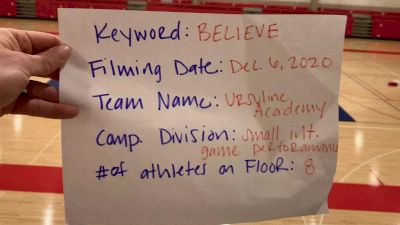 Keyword: BELIEVE
Filming Date: Dec. 6, 2020
Team Name: Ursuline
Academy
Comp. Division: small int.
game performance
# of athletes on Floor: 8